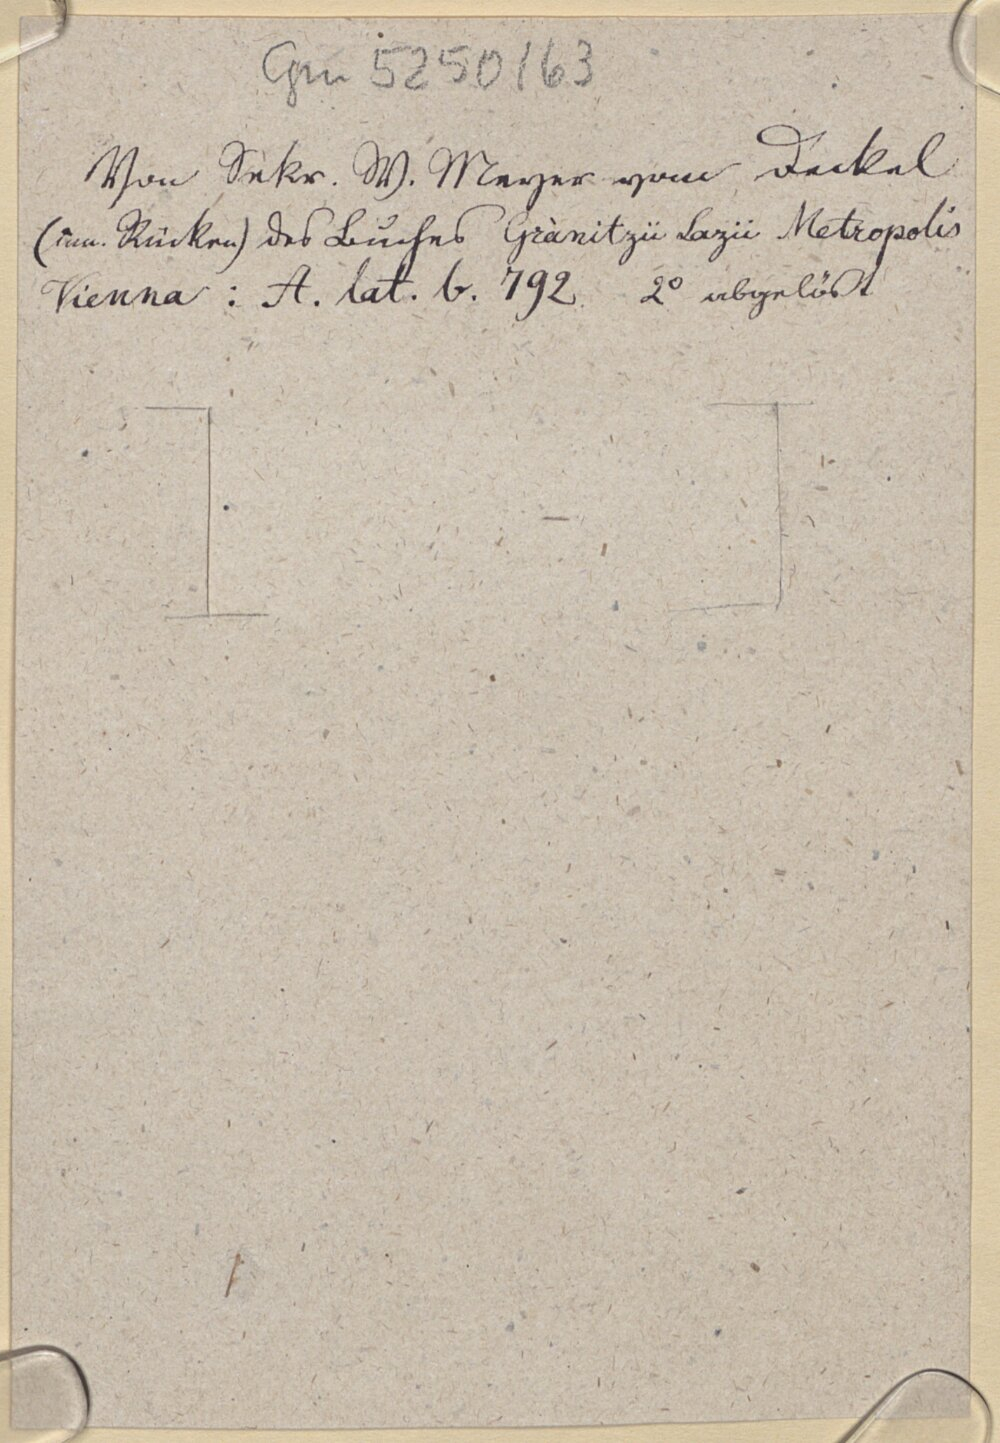 Cgm 5250/63
Von Sekr. W. Meyer vom Deckel
(inn. Rücken) des Buches Grànitzii Lazii Metropolis
Vienna : A. lat. b. 792 2° abgelöst